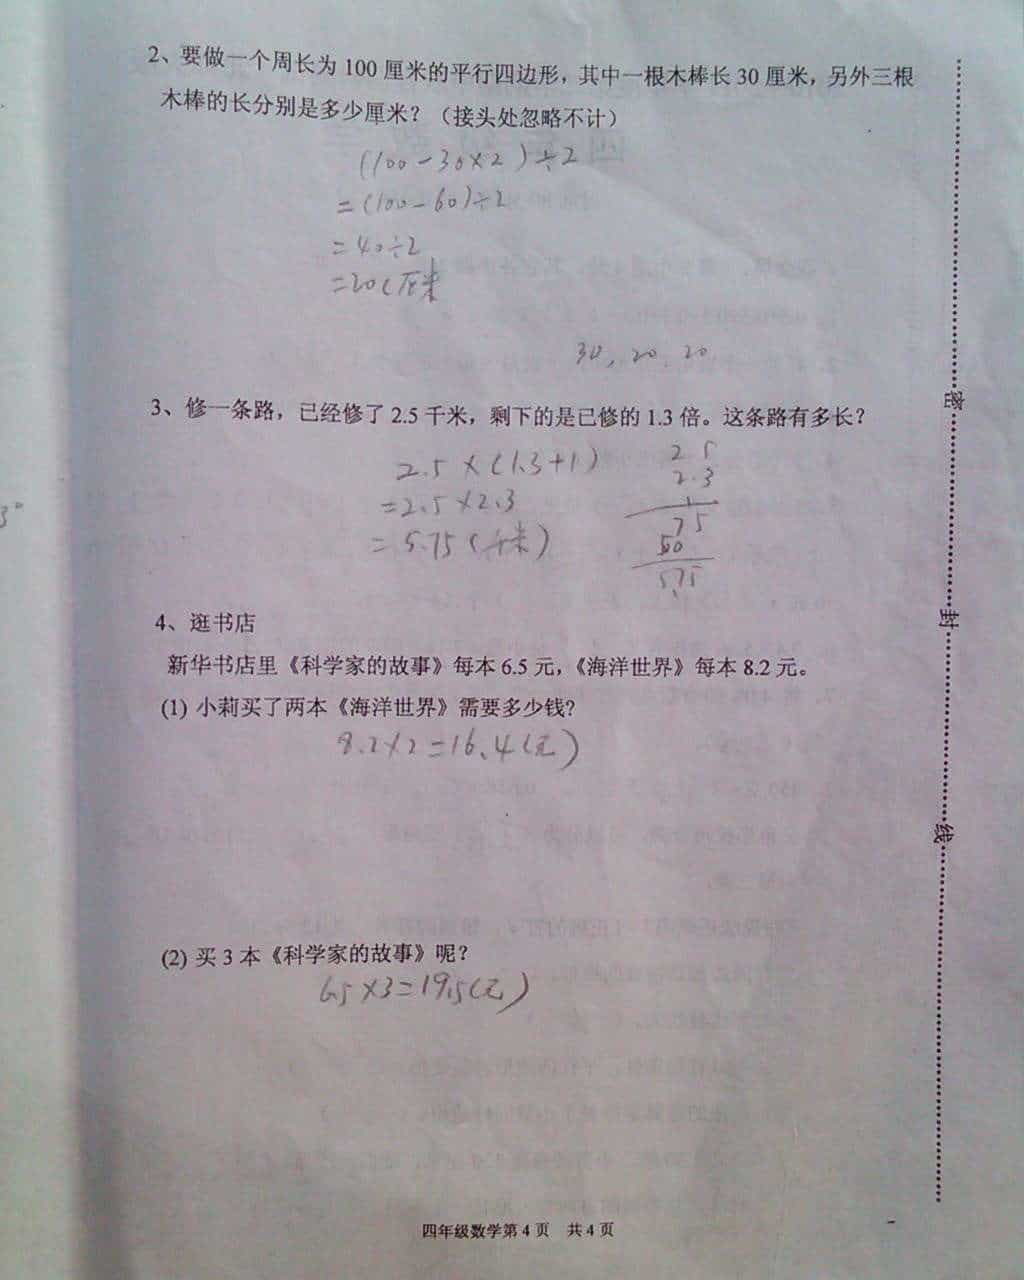 2、要做一个周长为 100 厘米的平行四边形，其中一根木棒长 30 厘米，另外三根
木棒的长分别是多少厘米？（接头处忽略不计）
(100-30×2)÷2
=(100-60)÷2
=40÷2
=20(厘米
30, 20 20
3、修一条路，已经修了 2.5 千米，剩下的是已修的 1.3 倍。这条路有多长？
2.5×(1.3+1)
=2.5×2.3
=5.75(千米)
2 5
2.3
75
50
575
4、逛书店
新华书店里《科学家的故事》每本 6.5 元，《海洋世界》每本 8.2 元。
(1) 小莉买了两本《海洋世界》需要多少钱？
8.2×2=16.4(元)
(2) 买 3 本《科学家的故事》呢？
6.5×3=19.5(元)
密
封
线
3°
四年级数学第 4 页 共 4 页